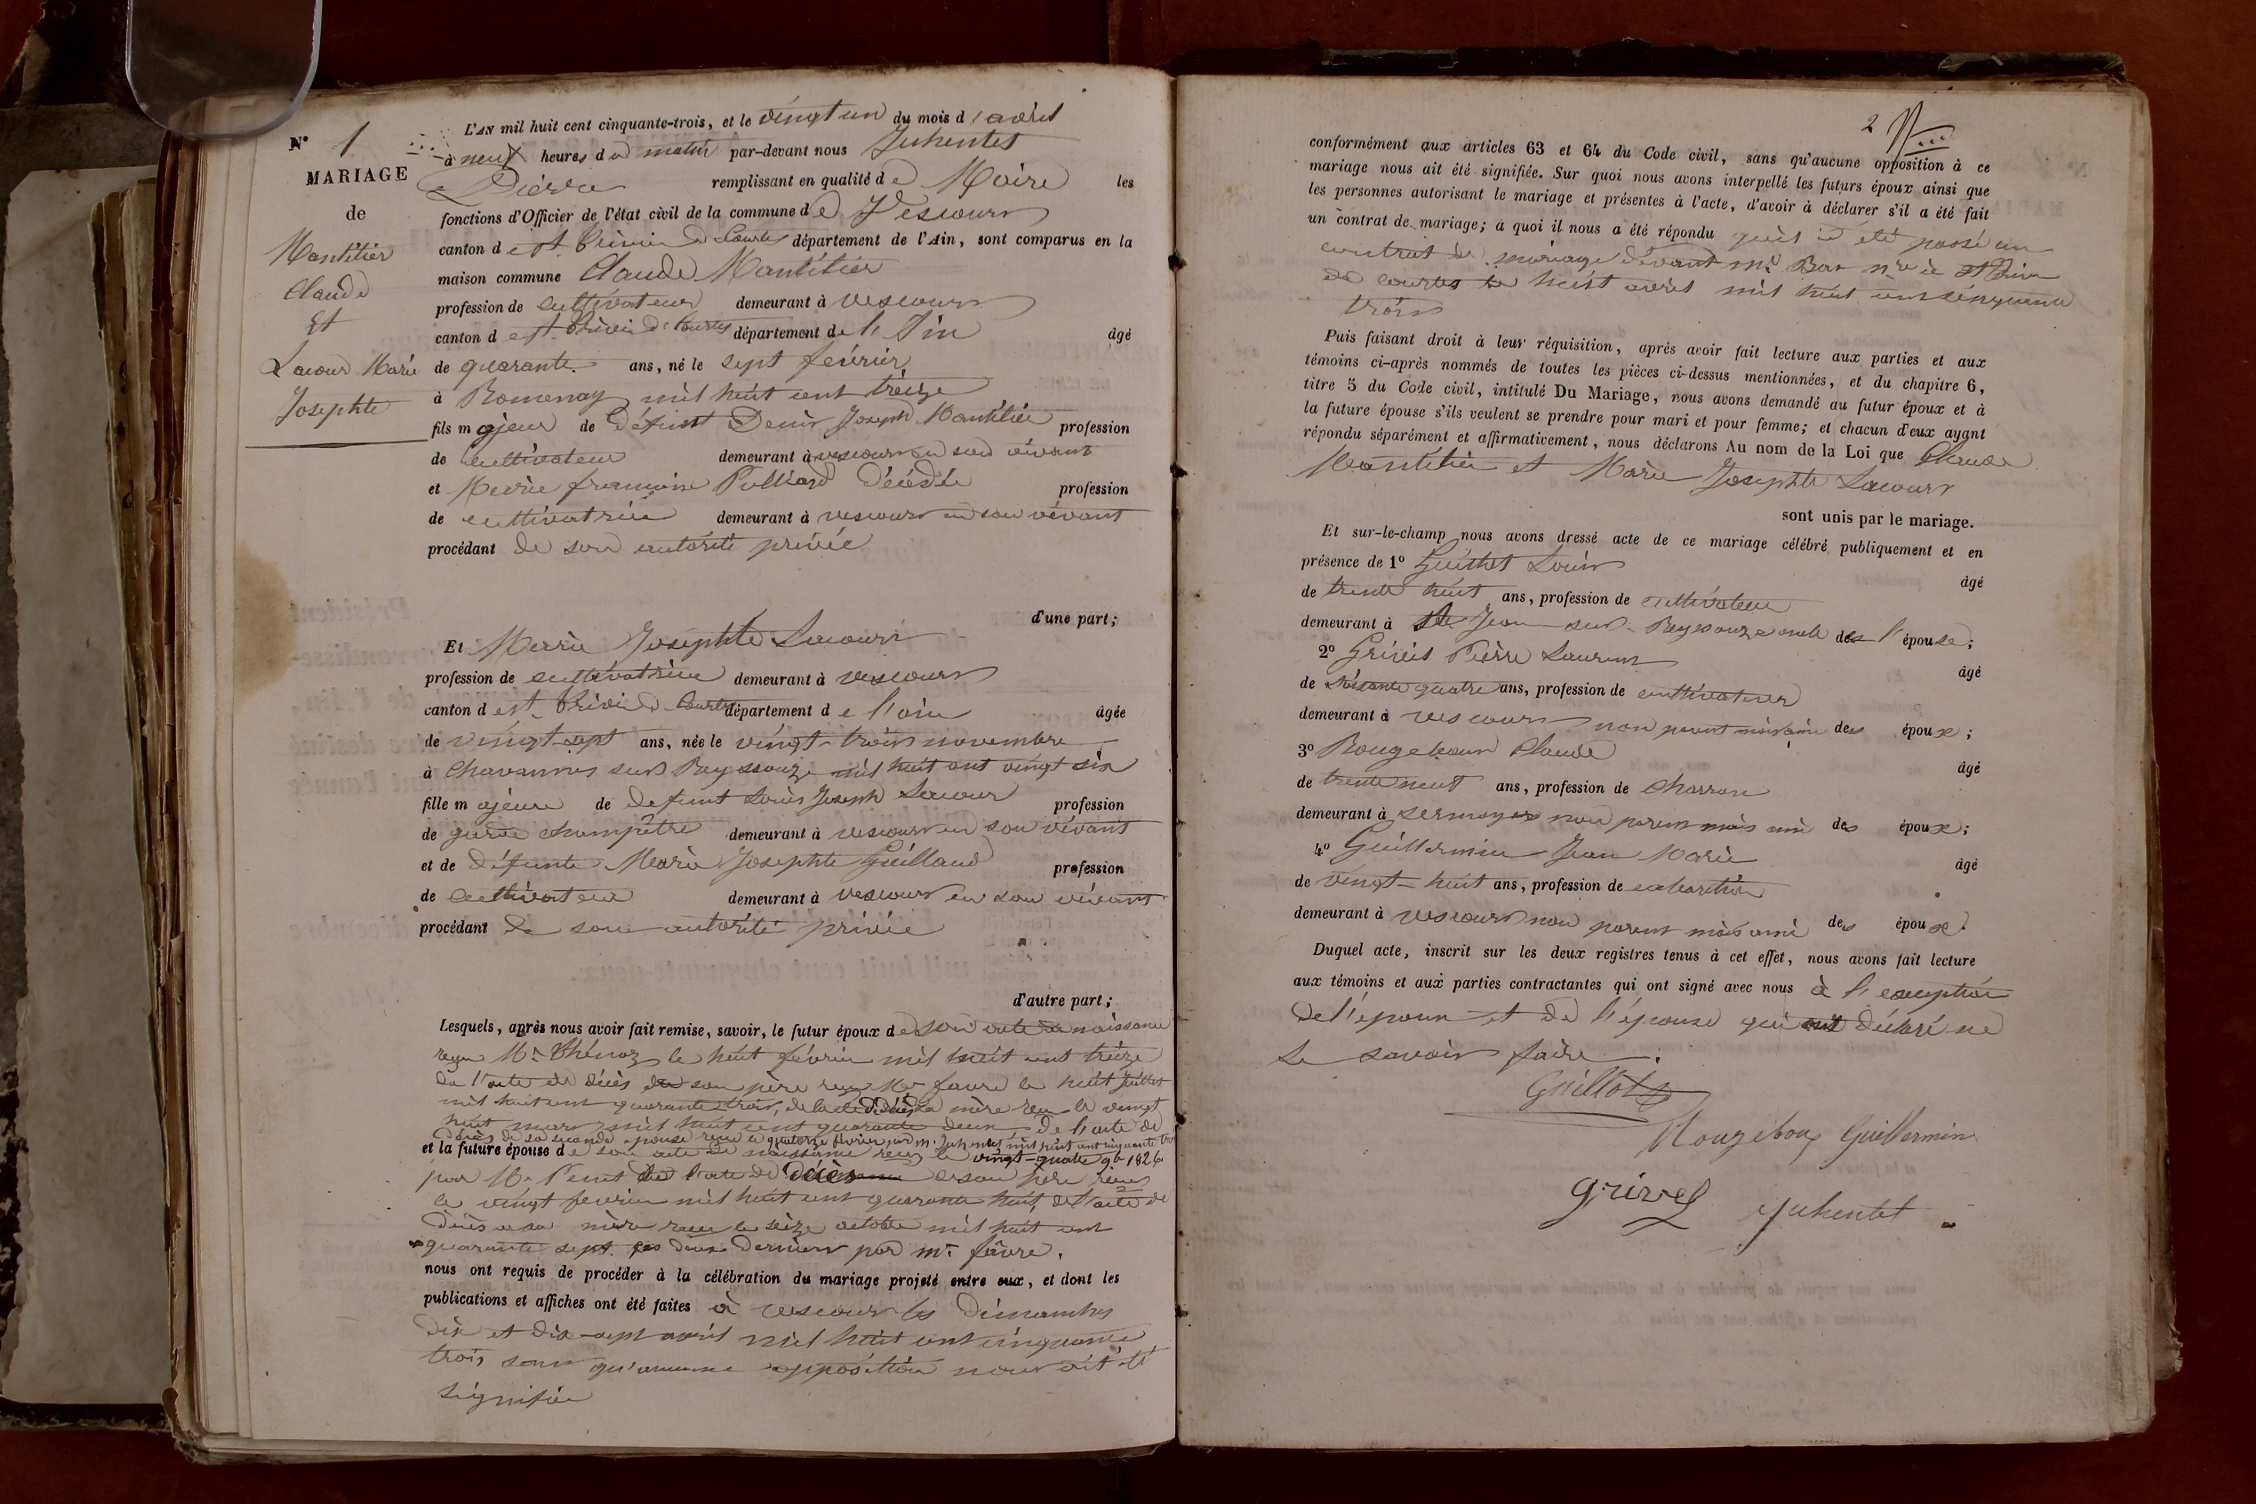 N° 1
MARIAGE
de
Mantélier
Claude
Et
Lacour Marie
Josephte
L'AN mil huit cent cinquante-trois, et le vingt un du mois d'avril
à neuf heures du matin par-devant nous Juhentet
Pierre remplissant en qualité de Maire les
fonctions d'Officier de l'état civil de la commune de Vescours
canton de St Trivier de Courtes département de l'Ain, sont comparus en la
maison commune Claude Mantélier
profession de cultivateur demeurant à vescours
canton de St Trivier de Courtes département de l'Ain âgé
de quarante ans, né le sept février
à Romenay mil huit cent treize
fils majeur de défunt Denis Joseph Mantélier profession
de cultivateur demeurant à vescours en son vivant
et Marie françoise Pulliard Décédée profession
de cultivatrice demeurant à vescours en son vivant
procédant de son autorité privée
d'une part;
Et Marie Josephte Lacour
profession de cultivatrice demeurant à vescours
canton de St Trivier de Courtes département de l'ain âgée
de vingt-sept ans, née le vingt-trois novembre
à chavannes sur Reyssouze mil huit cent vingt six
fille majeure de defunt Louis Joseph Lacour profession
de garde champêtre demeurant à vescours en son vivant
et de défunte Marie Josephte Guillaud profession
de cultivateur demeurant à vescours en son vivant
procédant de son autorité privée
d'autre part;
Lesquels, après nous avoir fait remise, savoir, le futur époux de son acte de naissance
reçu Mr Thénoz le huit février mil huit cent treize
de l'acte de décès de son père reçu Mr favre le huit juillet
mil huit cent quarante trois, de l'acte de décès de sa mère reçu le vingt
huit mars mil huit cent quarante deux, De l'acte de
décès de sa seconde épouse reçu le quatorze février par mr Juhentet mil huit cent cinquante trois
et la future épouse de son acte de naissance reçu le vingt-quatre 9bre 1826
par Mr l'acte de décès de son père reçu
le vingt fevrier mil huit cent quarante huit, de l'acte de
décès de sa mère reçu le seize octobre mil huit cent
quarante sept ces deux derniers par mr favre.
nous ont requis de procéder à la célébration du mariage projeté entre eux, et dont les
publications et affiches ont été faites à vescours les dimanches
dix et dix-sept avril mil huit cent cinquante
trois sans qu'aucune opposition nous ait été
signifiée
2
conformément aux articles 63 et 64 du Code civil, sans qu'aucune opposition à ce
mariage nous ait été signifiée. Sur quoi nous avons interpellé les futurs époux ainsi que
les personnes autorisant le mariage et présentes à l'acte, d'avoir à déclarer s'il a été fait
un contrat de mariage; à quoi il nous a été répondu qu'il a été passé un
contrat de mariage devant Me Bon nre à St Trivier
de courtes le huit avril mil huit cent cinquante
trois
Puis faisant droit à leur réquisition, après avoir fait lecture aux parties et aux
témoins ci-après nommés de toutes les pièces ci-dessus mentionnées, et du chapitre 6,
titre 5 du Code civil, intitulé Du Mariage, nous avons demandé au futur époux et à
la future épouse s'ils veulent se prendre pour mari et pour femme; et chacun d'eux ayant
répondu séparément et affirmativement, nous déclarons Au nom de la Loi que Claude
Mantélier et Marie Josephte Lacour
sont unis par le mariage.
Et sur-le-champ nous avons dressé acte de ce mariage célébré publiquement et en
présence de 1° Louis âgé
de trente huit ans, profession de cultivateur
demeurant à St Jean sur Reyssouze oncle de l'épouse;
2° Grivel Pierre Laurent âgé
de soixante quatre ans, profession de cultivateur
demeurant à vescours non parent mais ami des époux;
3° Rougeboux Claude âgé
de trente neuf ans, profession de charron
demeurant à sermoyer non parent mais ami des époux;
4° Guillermin Jean Marie âgé
de vingt-huit ans, profession de cabaretier
demeurant à vescours non parent mais ami des époux.
Duquel acte, inscrit sur les deux registres tenus à cet effet, nous avons fait lecture
aux témoins et aux parties contractantes qui ont signé avec nous à l'exception
de l'époux et de l'épouse qui ont déclaré ne
le savoir faire.
Guillot
Rougeboux Guillermin
Grivel Juhentet